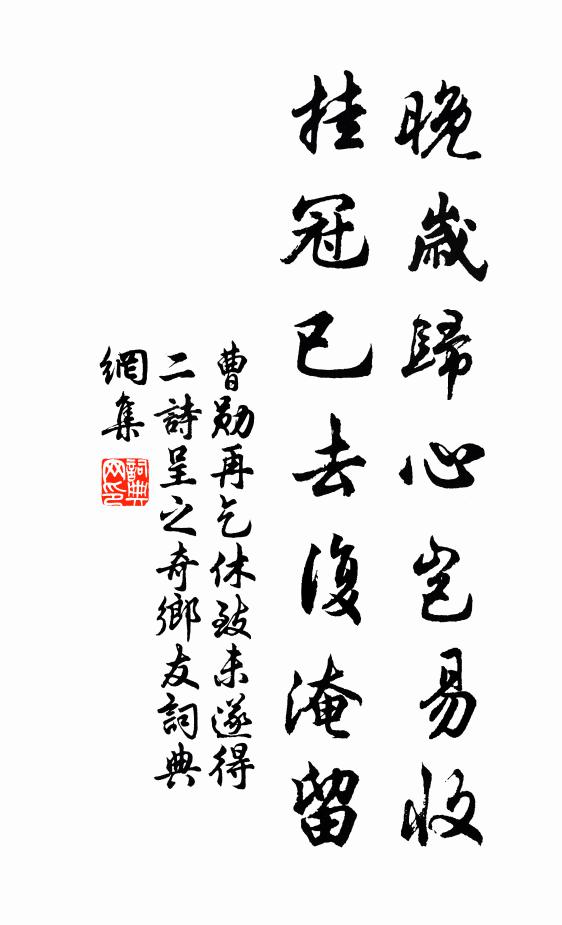 晚歲歸心豈易收
挂冠已去復淹留
曹勛再乞休致未遂得
二詩呈之奇鄉友詞典
網集
詞典網印